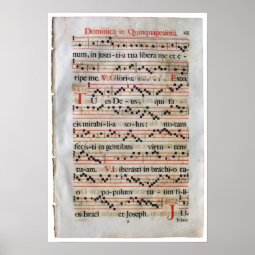 Dominica in Quinquagesima.
num, in justi-ti-a tua libera me et e-
ripe me. V. Glori-a Esto
T
U es De-us, qui fa
cis mirabi-li-a so-lus: no-tam
fecis-ti in gentibus virtu-tem
tu-am. V. Liberasti in brachi-o tu-
o populum tuum fili-
os Israel et Joseph. J